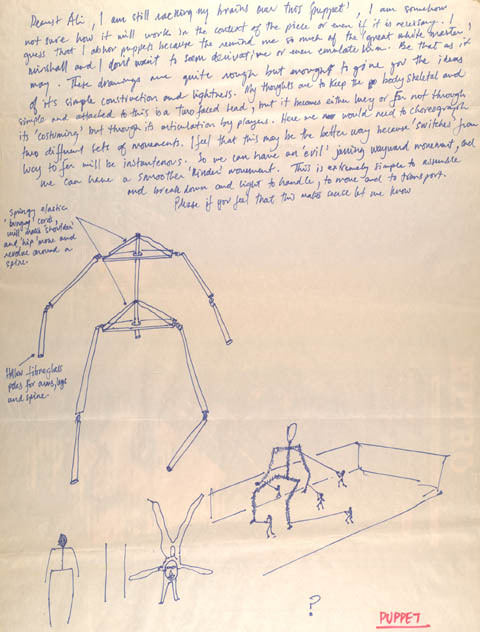 Dearest Ali, I am still racking my brains over this 'puppet', I am somehow
not sure how it will work in the context of the piece or even if it is necessary. I
guess that I abhor puppets because the remind me so much of the 'great white master',
minshall and I don't want to seem derivative or even emulate him. Be that as it
may. These drawings are quite rough but enough to give you the ideas
of its simple construction and lightness. My thoughts are to keep the body skeletal and
simple and attached to this is a 'two faced head', but it becomes either lucy or fer not through
its 'costuming' but through its articulation by players. Here we would need to choreograph
two different sets of movements. I feel that this may be the better way because 'switches' from
lucy to fer will be instantaneous. So we can have an 'evil' wayward movement, and
we can have a smoother 'kinder' movement. This is extremely simple to assemble
and break down and light to handle, to move and to transport.
Please if you feel that this makes let me know
springy elastic
'bungey' cords,
will make 'shoulder'
and 'hip' move and
revolve around a
spine.
Hollow fibreglass
poles for arms, legs
and spine.
?
PUPPET